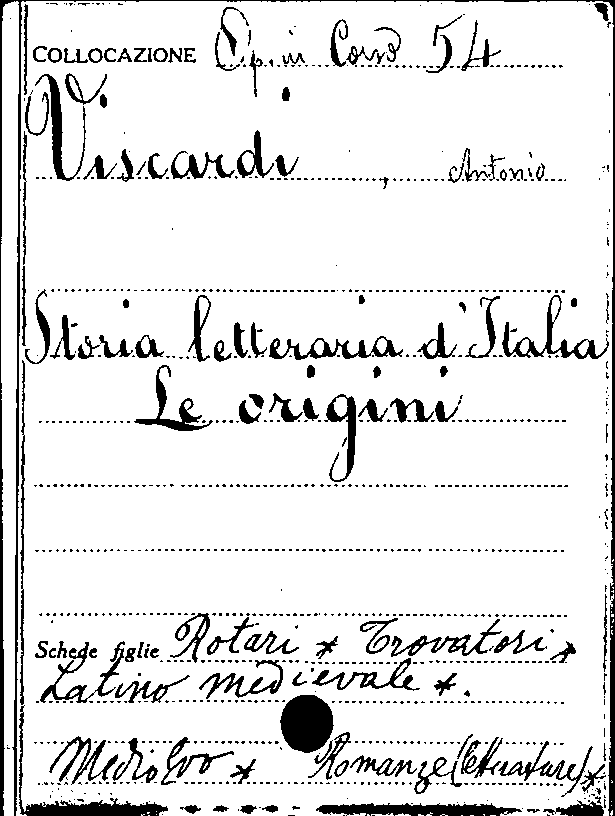 COLLOCAZIONE Op. in Corso 54
Viscardi, Antonio
Storia letteraria d'Italia
Le origini
Schede figlie Rotari * Trovatori *
Latino medievale *.
Medio Evo * Romanze (letterature) *